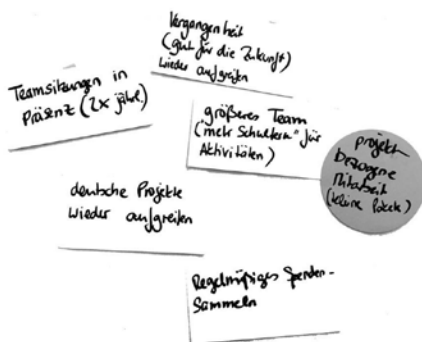 Vergangenheit
(gut für die Zukunft)
wieder aufgreifen
Teamsitzungen in
Präsenz (2x jährl.)
größeres Team
("mehr Schultern" für
Aktivitäten)
projekt-
bezogene
Mitarbeit
(kleine Pakete)
deutsche Projekte
wieder aufgreifen
Regelmäßiges Spenden-
Sammeln